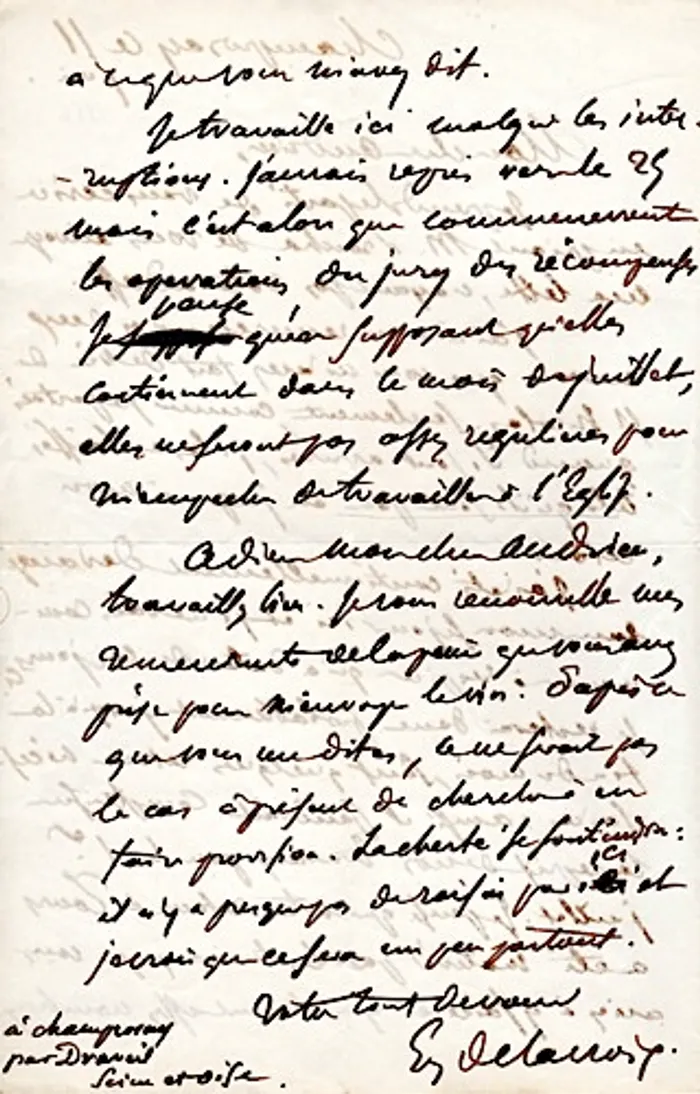 à ce que vous m'avez dit.
Je travaille ici malgré les inter-
-ruptions. J'aurais repris vers le 25
mais c'est alors que commenceront
les opérations du jury des récompenses
pense
Je qu'en supposant qu'elles
continuent dans le mois de juillet,
elles ne seront pas assez régulières pour
m'empêcher de travailler à l'Eglise.
Adieu mon cher Andrieu,
travaillez bien. Je vous renouvelle mes
remerciements de la peine que vous avez
prise pour m'envoyer le vin: d'après ce
que vous me dites, ce ne serait pas
le cas à présent de chercher à en
faire provision. La cherté se fait
ici
il n'y a presque pas de raisin par et
je crois que ce sera un peu partout.
Votre tout dévoué
Eug Delacroix.
à Champrosay
par Draveil
Seine et Oise.